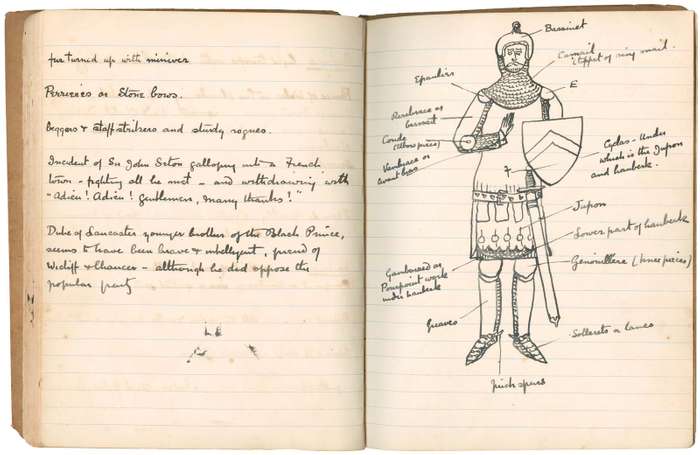 fur turned up with miniver
Perrieres or Stone bows.
Beggers & staffstrikers and sturdy rogues.
Incident of Sir John Seton galloping into a French
town - fighting all he met - and withdrawing with
"Adieu! Adieu! Gentlemen, many thanks!"
Duke of Lancaster younger brother of the Black Prince,
seems to have been brave & intelligent, friend of
Wicliff & Chaucer - although he did oppose the
popular party
Bassinet
Camail
(tippet of ring mail.
Epauliers
E
Rerebrace or
brassart
Coude
(Elbow pieces)
Vambrace or
avant bras
Cyclas - Under
which is the Jupon
and hauberk.
Jupon
Lower part of hauberk
Genouillere (knee pieces)
Gamboised or
Pourpoint work
under hauberk
Greaves
Sollerets or lames
Prick spurs